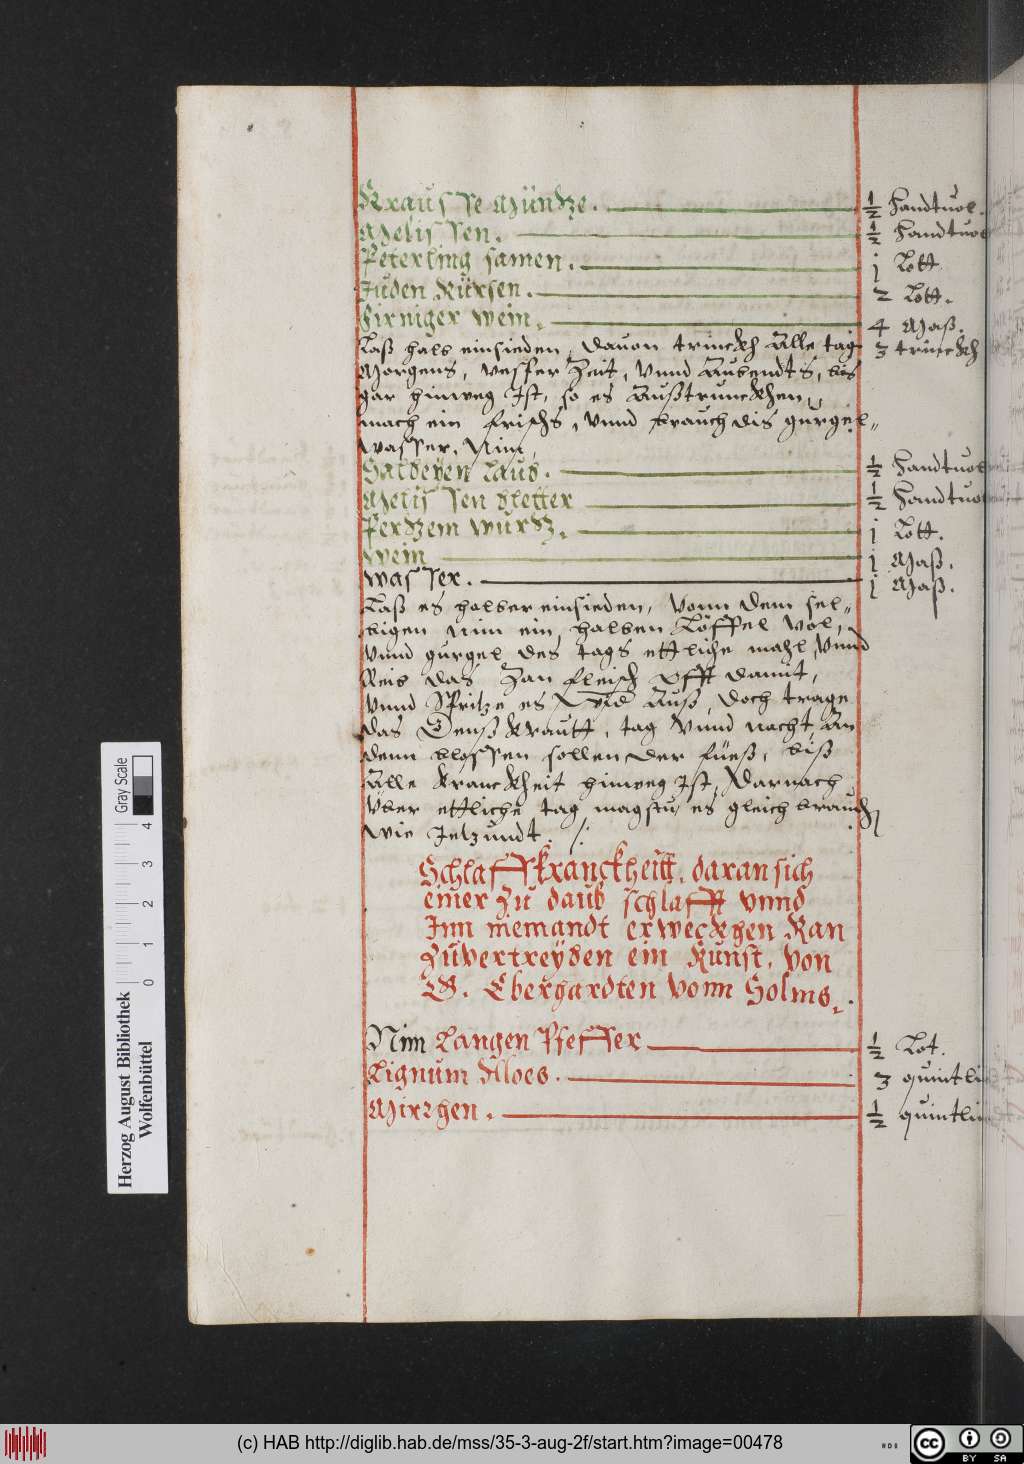 Krausse Müntze. ½ Handtuol.
Melissen. ½ Handtuol
Peterling samen. j Lott
Juden Kürsen. 2 Lott.
Firniger Wein. 4 Maß.
Laß halb einsieden, dauon trinckh Alle tag 3 trünckh
Morgens, Vesper Zeit, Vnnd Aubendts, bis
gar hinweg Jst, so es Außtrunckhen,
mach ein frischs, Vnnd brauch dis gurgel„
wasser. Nim,
Salbeyen Laub. ½ Handtuol
Melissen bletter ½ Handtuol
Wurtz. j Lott.
Wein j Maß.
Wasser. j Maß.
Laß es halber einsieden, Vonn dem sel„
bigen nim ein halben Löffel Vol,
Vnnd gurgel des tags ettliche mahl, Vnnd
Reib das Zan fleisch offt damit,
Vnnd Spritze es Wid Auß, doch trage
das Genß krautt, tag Vnnd nacht, An
denn blossen sollen der füeß, biß
Alle kranckheit hinweg Jst, Darnach
Vber ettliche tag, magstu es gleich brauch
wie Jetzundt. /.
Schlaff kranckheitt, daran sich
einer Zu daub schlafft vnnd
Jnn niemandt erweckhen Kan
Zuvertreyben ein Kunst, Von
G. Eberhardten Vonn Solms.
Nim Langen Pfeffer ½ Lot.
Lignum Aloes. 3 quintli
Mirrhen. ½ quintli
Gray Scale
0 1 2 3 4
Herzog August Bibliothek
Wolfenbüttel
(c) HAB http://diglib.hab.de/mss/35-3-aug-2f/start.htm?image=00478
cc BY SA